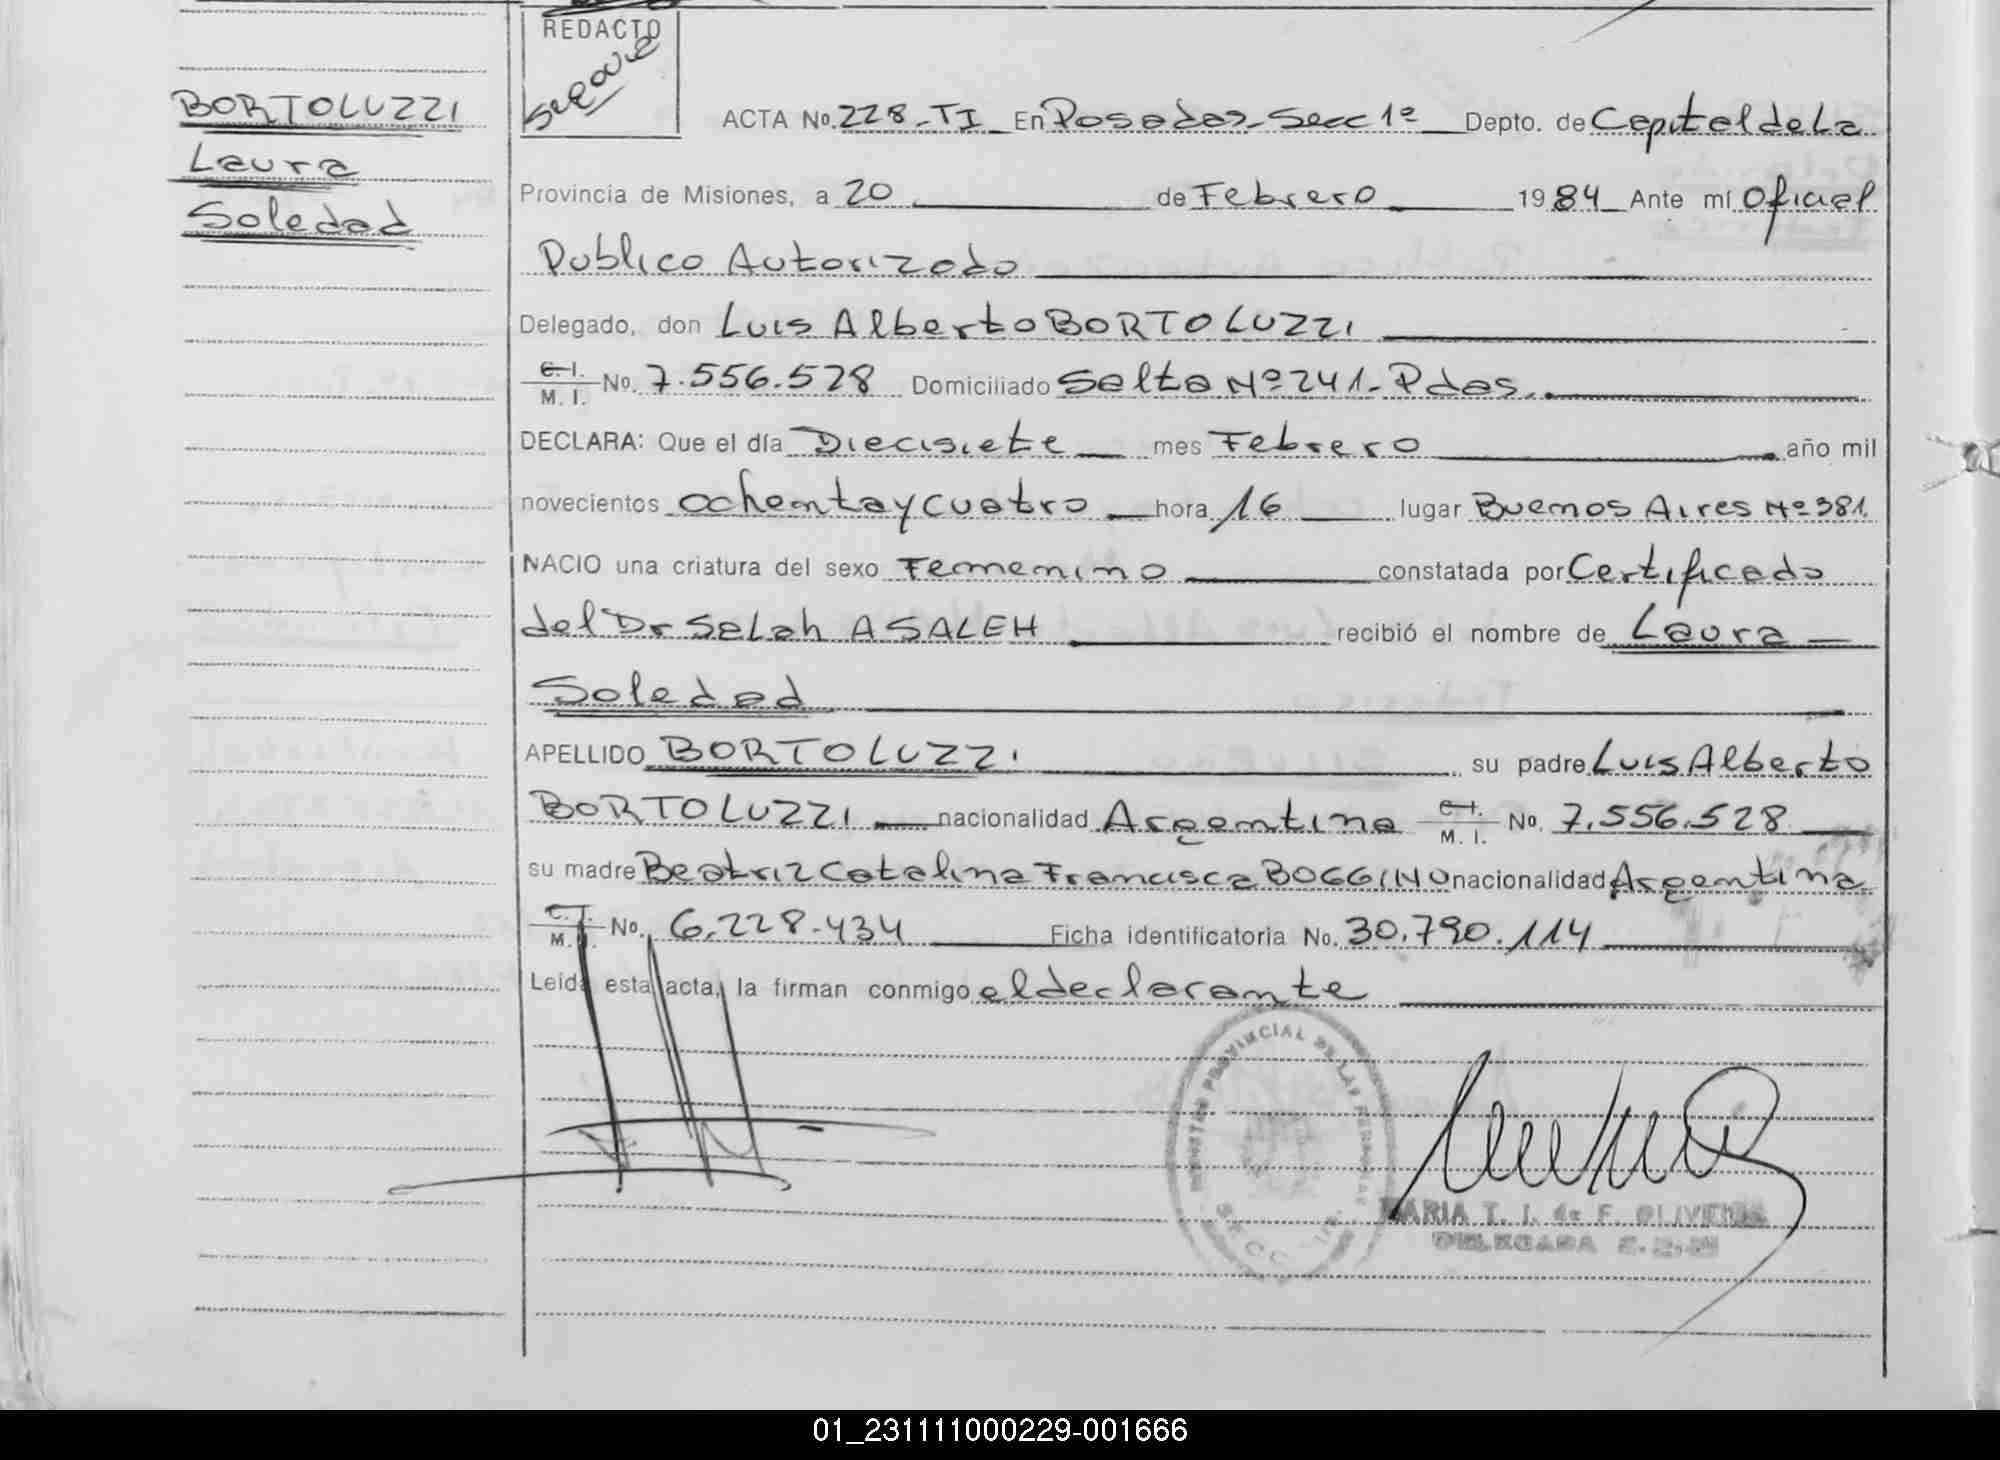 REDACTO
BORTOLUZZI
Laura
Soledad
ACTA No. 228-TI En Posadas-Secc 1º Depto. de Capital de La
Provincia de Misiones, a 20 de Febrero 1984 Ante mí Oficial
Publico Autorizado
Delegado, don Luis Alberto BORTOLUZZI
C. I. M. I. No. 7.556.528 Domiciliado Salta Nº 241-Pdas.
DECLARA: Que el día Diecisiete mes Febrero año mil
novecientos ochenta y cuatro hora 16 lugar Buenos Aires Nº 381.
NACIO una criatura del sexo Femenino constatada por Certificado
del Dr Salah A SALEH recibió el nombre de Laura
Soledad
APELLIDO BORTOLUZZI su padre Luis Alberto
BORTOLUZZI nacionalidad Argentina C. I. M. I. No. 7.556.528
su madre Beatriz Catalina Francisca BOGGINO nacionalidad Argentina
C. I. M. I. No. 6.228.434 Ficha identificatoria No. 30.790.114
Leída esta acta, la firman conmigo el declarante
PROVINCIAL DE LAS PERSONAS
MARIA T. I. de F. OLIVEIRA
DELEGADA
01_231111000229-001666